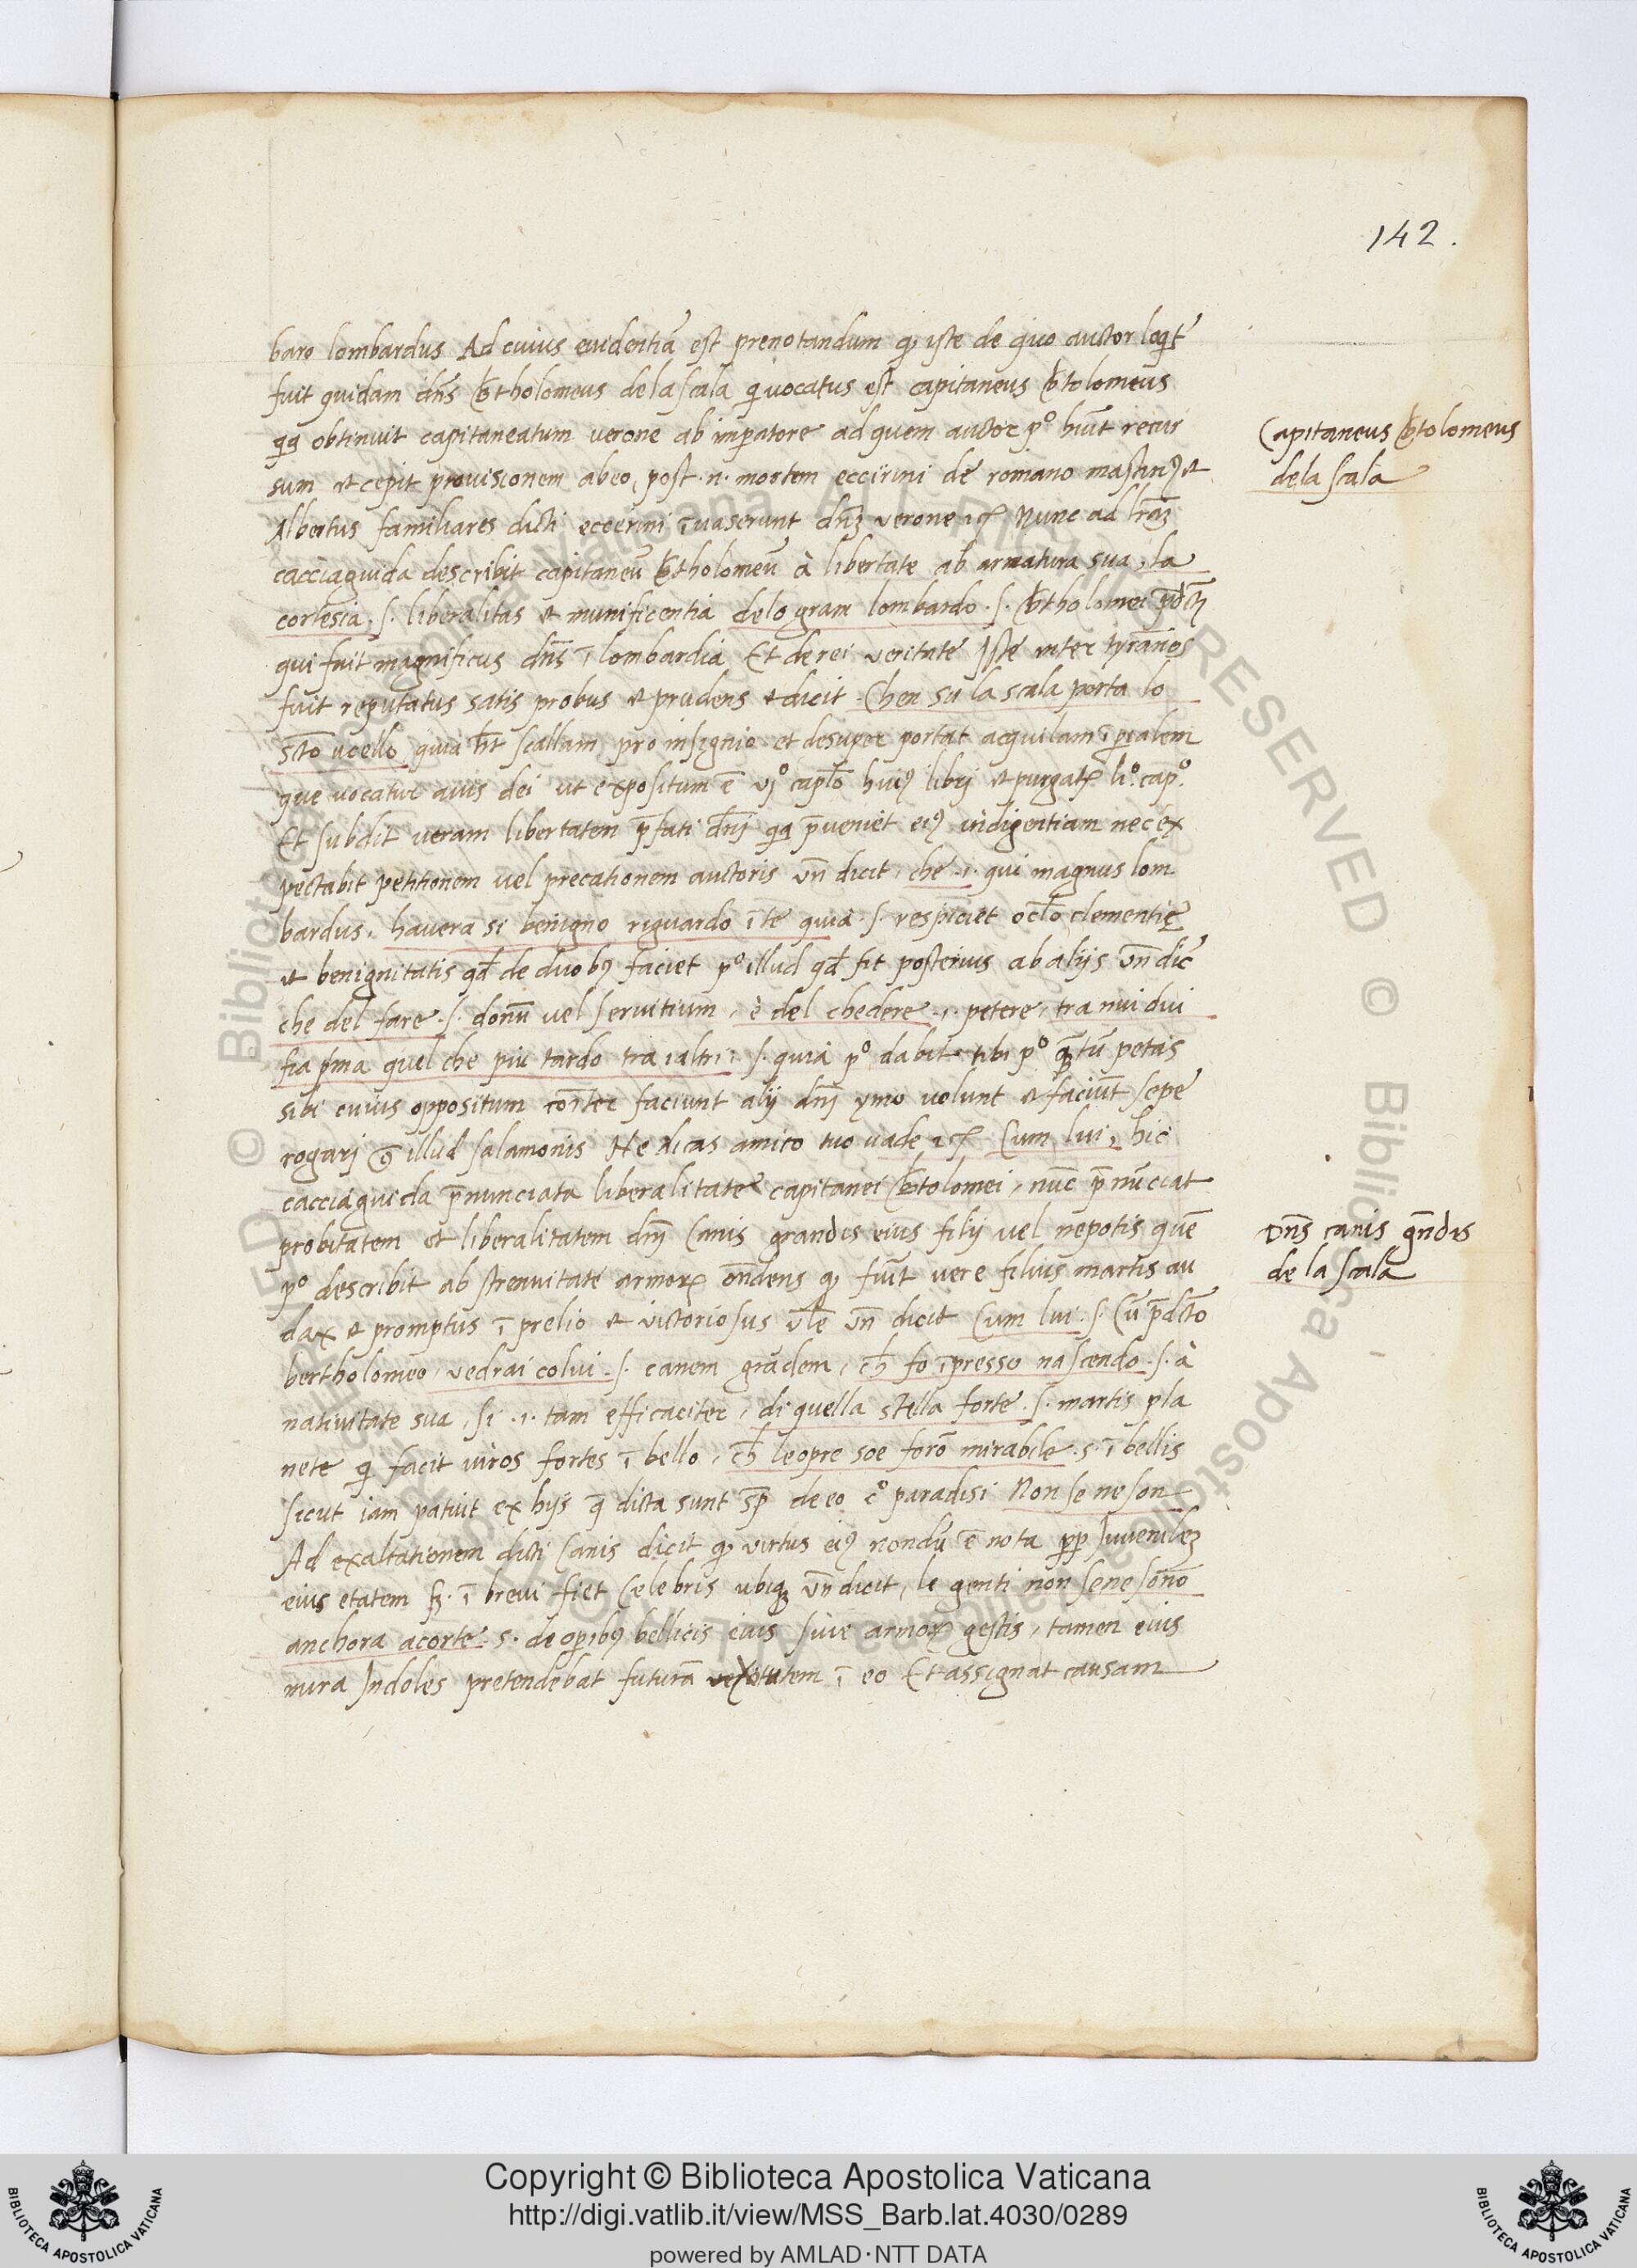 142.
baro lombardus Ad cuius euidentiā est prenotandum ꝙ iste de quo auctor loqit̄
fuit quidam dn̄s b̄tholomeus dela scala qi vocatus est capitaneus b̄tolomeus
qꝗ obtinuit capitaneatum verone ab imꝑatore ad quem auctor pº hūit recur
sum et cepit prouisionem abeo, post .n. mortem eccirini de romano mastinꝰ et
Albertus familiares dicti eccerini īuaserunt dn̄ȝ verone ⁊cꝭ Nunc ad lr̄aȝ
cacciaguida describit capitaneū b̄tholomeū à libertate ab armatura sua, la
cortesia .s. liberalitas et munificentia delo gram lombardo .s. b̄tholomei p̄dcī
qui fuit magnificus dn̄s ī lombardia Et de rei veritate Iste inter tyrānos
fuit reputatus satis probus et prudens et dicit Chen su la scala porta lo
sc̄to ucello quia h̄t scallam pro insignio et desuper portat aquilam īperialem
que vocatur auis dei ut expositum ē vjº capl̄o huiꝰ librj et purgatꝭ liº. capº.
Et subdit veram libertatem p̄fati dn̄j qꝗ p̄ueniet eiꝰ indigentiam nec ex
pectabit petitionem vel precationem auctoris vn̄ dicit, che .i. qui magnus lom
bardus, hauera si benigno riguardo ī te quia .s. respiciet ocl̄o clementię
et benignitatis qd̄ de duobꝰ faciet pº illud qd̄ fit posterius ab alijs vn̄ dic̄
che del fare .s. donū vel seruitium, è del chedere .i. petere, tra nui dui
fia p̄ma quel che piu tardo tra ialtri .s. quia pº dabit tibi pº quātū petas
sibi cuius oppositum cōiter faciunt alij dn̄j ymo volunt et faciūt sepe
rogarj illud salamonis Ne dicas amico tuo uade ⁊cꝭ Cum lui, hic
cacciaguida p̄nunciata liberalitate capitanei b̄tolomei, nūc p̄nūciat
probitatem et liberalitatem dn̄j Canis grandis eius filij vel nepotis quē
pº describit ab strenuitate armorꝭ on̄dens ꝙ fuit vere filius martis au
dax et promptus ī prelio et victoriosus vl̄e vn̄ dicit Cum lui .s. Cū p̄dc̄to
bertholomeo, vedrai colui .s. canem grādem, ch̄ fo īpresso nascendo .s. à
natiuitate sua, si .i. tam efficaciter, di quella stella forte .s. martis pla
nete qi facit uiros fortes ī bello, ch̄ leopre soe forō mirabile .s. ī bellis
sicut iam patuit ex hijs q̄ dicta sunt sp̄ de eo cº paradisi Non se ne son
Ad exaltationem dicti Canis dicit ꝙ virtus eiꝰ nondū ē nota pp̄ Iuvenileȝ
eius etatem sȝ. ī brevi fiet celebris ubiqȝ vn̄ dicit, le genti non sene sōno
anchora acorte .s. de operibꝰ bellicis eius siue armorꝭ gestis, tamen eius
mira Indoles pretendebat futurā ī eo Et assignat causam
Capitaneus b̄tolomeus
dela scala
Dn̄s canis gn̄dis
de la scala
Copyright © Biblioteca Apostolica Vaticana
http://digi.vatlib.it/view/MSS_Barb.lat.4030/0289
powered by AMLAD·NTT DATA
BIBLIOTECA APOSTOLICA VATICANA
BIBLIOTECA APOSTOLICA VATICANA